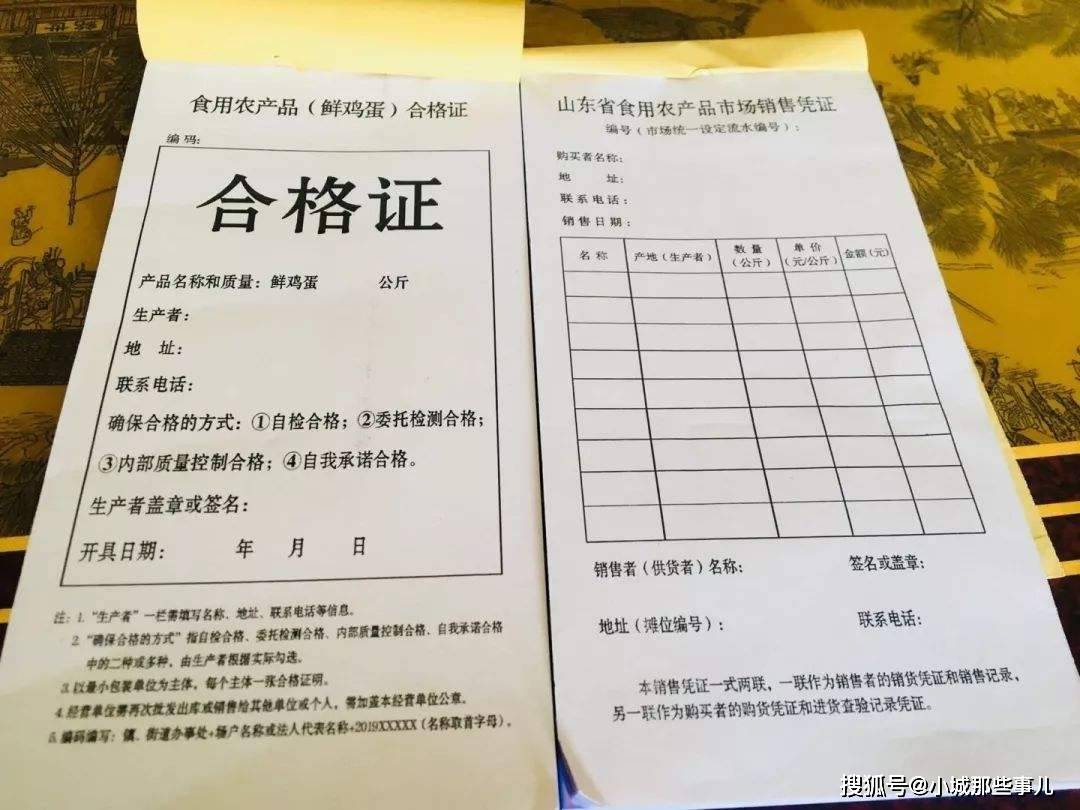 食用农产品（鲜鸡蛋）合格证
编码:
合格证
产品名称和质量：鲜鸡蛋 公斤
生产者：
地 址：
联系电话：
确保合格的方式：①自检合格；②委托检测合格；
③内部质量控制合格；④自我承诺合格。
生产者盖章或签名：
开具日期： 年 月 日
注：1.“生产者”一栏需填写名称、地址、联系电话等信息。
2.“确保合格的方式”指自检合格、委托检测合格、内部质量控制合格、自我承诺合格
中的二种或多种，由生产者根据实际勾选。
3.以最小包装单位为主体，每个主体一张合格证明。
4.经营单位需再次批发出库或销售给其他单位或个人，需加盖本经营单位公章。
5.编码编写：镇、街道办事处+场户名称或法人代表名称+2019XXXXX（名称取首字母）。
山东省食用农产品市场销售凭证
编号（市场统一设定流水编号）：
购买者名称：
地 址：
联系电话：
销售日期：
名称 产地（生产者） 数量（公斤） 单价（元/公斤） 金额（元）
销售者（供货者）名称： 签名或盖章：
地址（摊位编号）： 联系电话：
本销售凭证一式两联，一联作为销售者的销货凭证和销售记录，
另一联作为购买者的购货凭证和进货查验记录凭证。
搜狐号@小城那些事儿